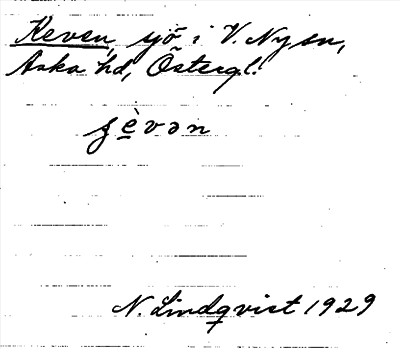 Keven, sjö i V. Ny sn,
Aska hd, Östergl.
N. Lindqvist 1929